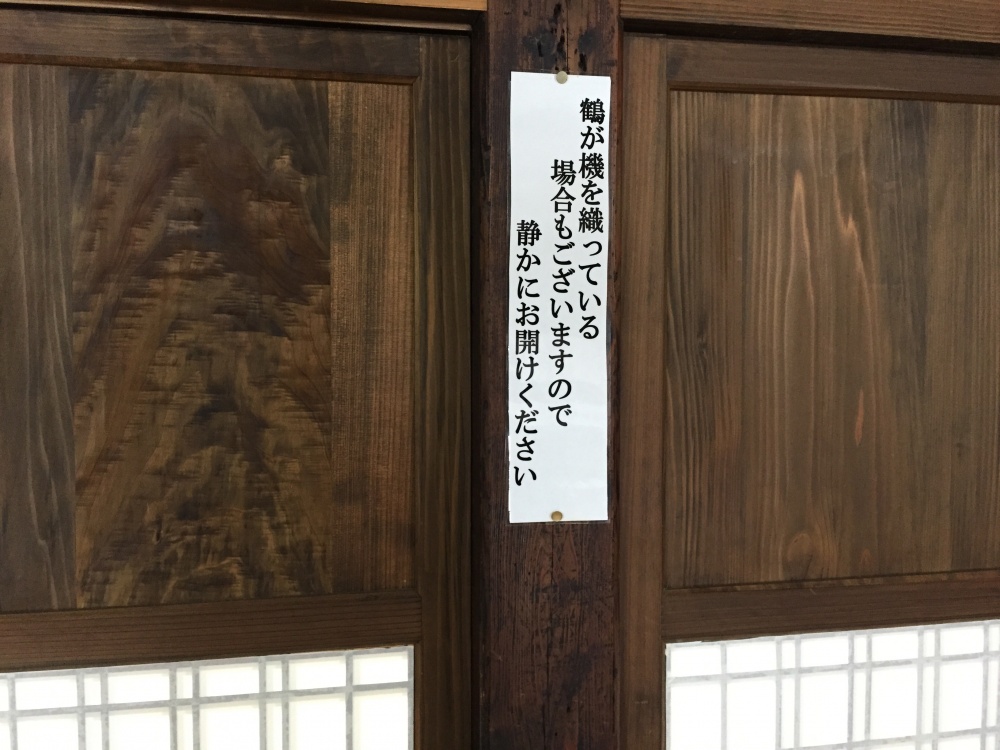 鶴が機を織っている
場合もございますので
静かにお開けください